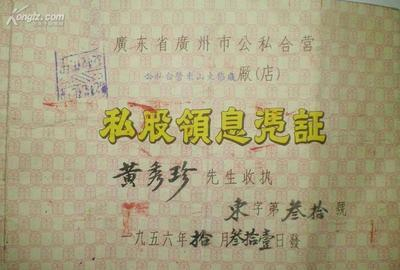 Kongfz.com
廣东省廣州市公私合营
公私合營東山火𤇆廠厰(店)
私股領息凭証
黃秀珍先生收执
東字第叁拾號
一九五六年拾月叁拾壹日發